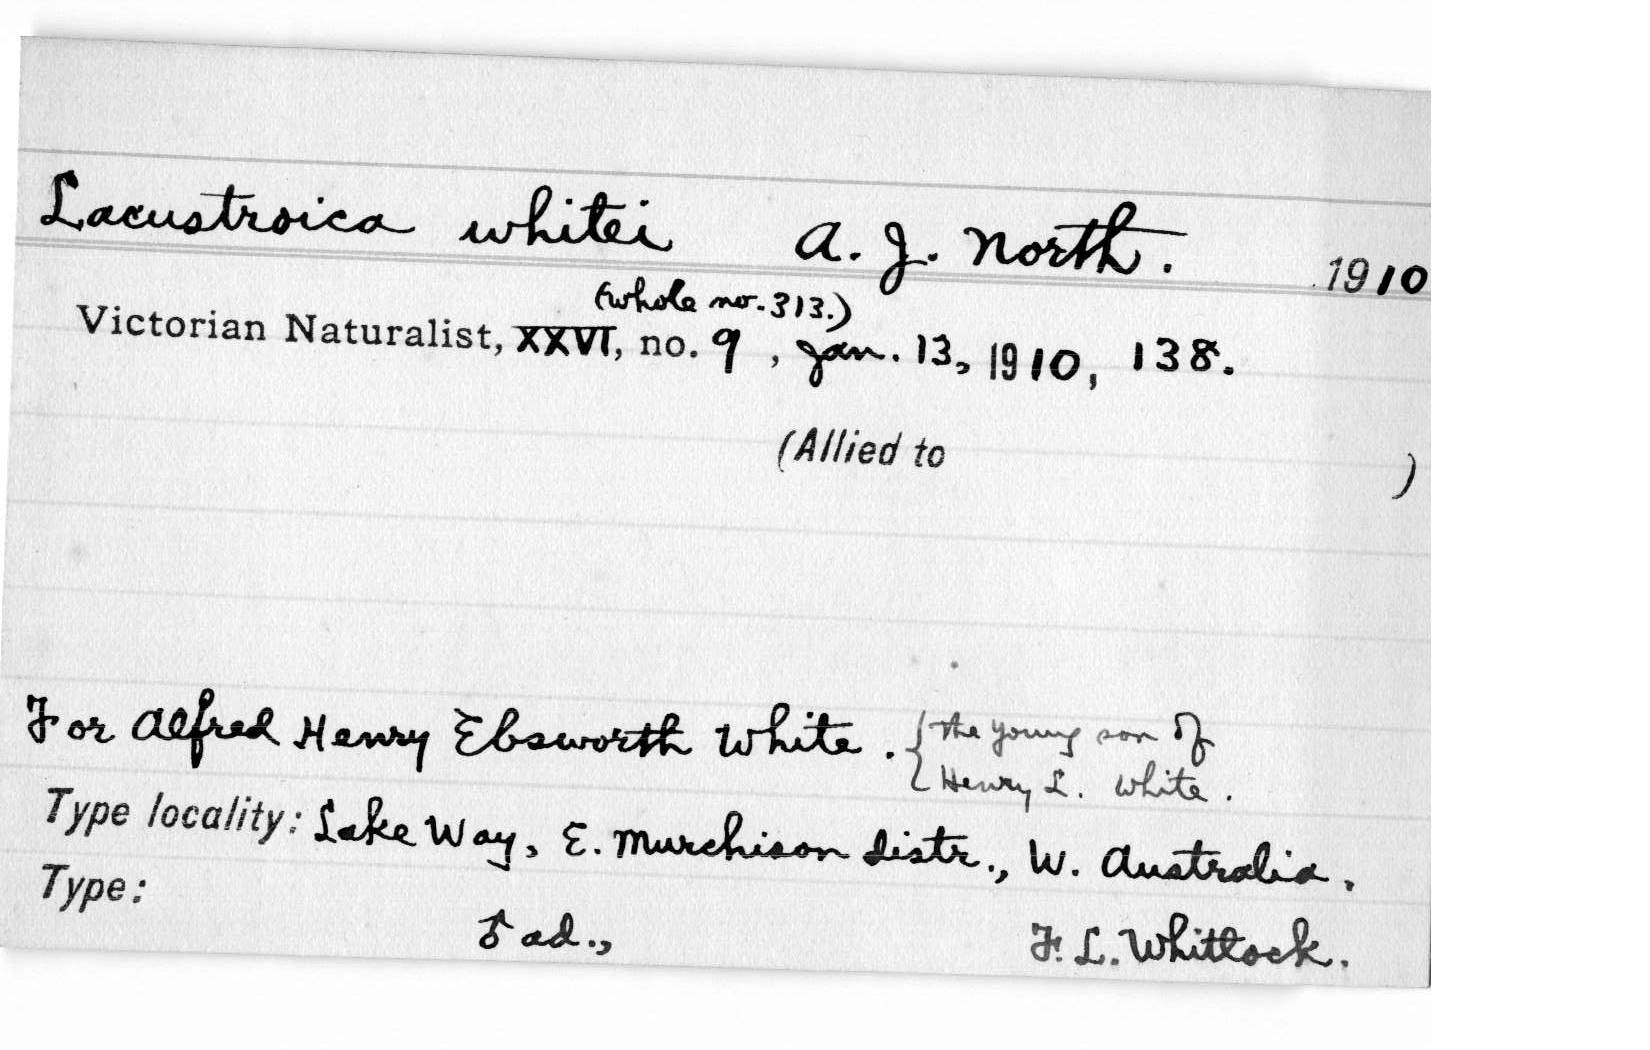 Lacustroica whitei A. J. North. 1910
(whole no. 313.)
Victorian Naturalist, XXVI, no. 9, Jan. 13, 1910, 138.
(Allied to )
For Alfred Henry Ebsworth White. {the young son of
Henry L. White.
Type locality: Lake Way, E. Murchison distr., W. Australia.
Type:
♂ ad., F. L. Whitlock.